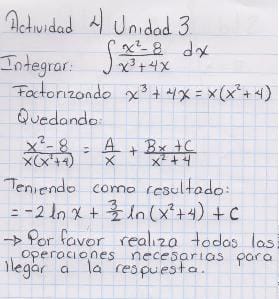 Actividad 2/ Unidad 3
Integrar: ∫ x²-8 / x³+4x dx
Factorizando x³+4x = x(x²+4)
Quedando:
x²-8 / x(x²+4) = A/x + Bx+C / x²+4
Teniendo como resultado:
= -2 ln x + 3/2 ln (x²+4) + C
→ Por favor realiza todas las
operaciones necesarias para
llegar a la respuesta.